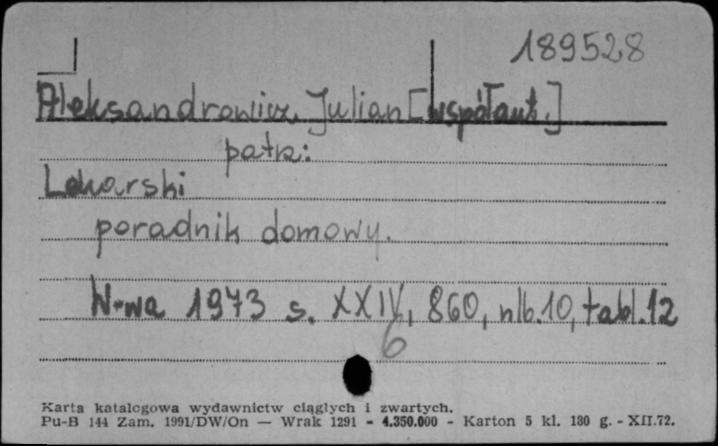 189528
Aleksandrowicz Julian [współaut.]
patrz:
Lekarski
poradnik domowy.
W-wa 1973 s. XXIV, 860, nlb. 10, tabl. 12
6
Karta katalogowa wydawnictw ciągłych i zwartych.
Pu-B 144 Zam. 1991/DW/On — Wrak 1291 - 4.350.000 - Karton 5 kl. 180 g. - XII.72.